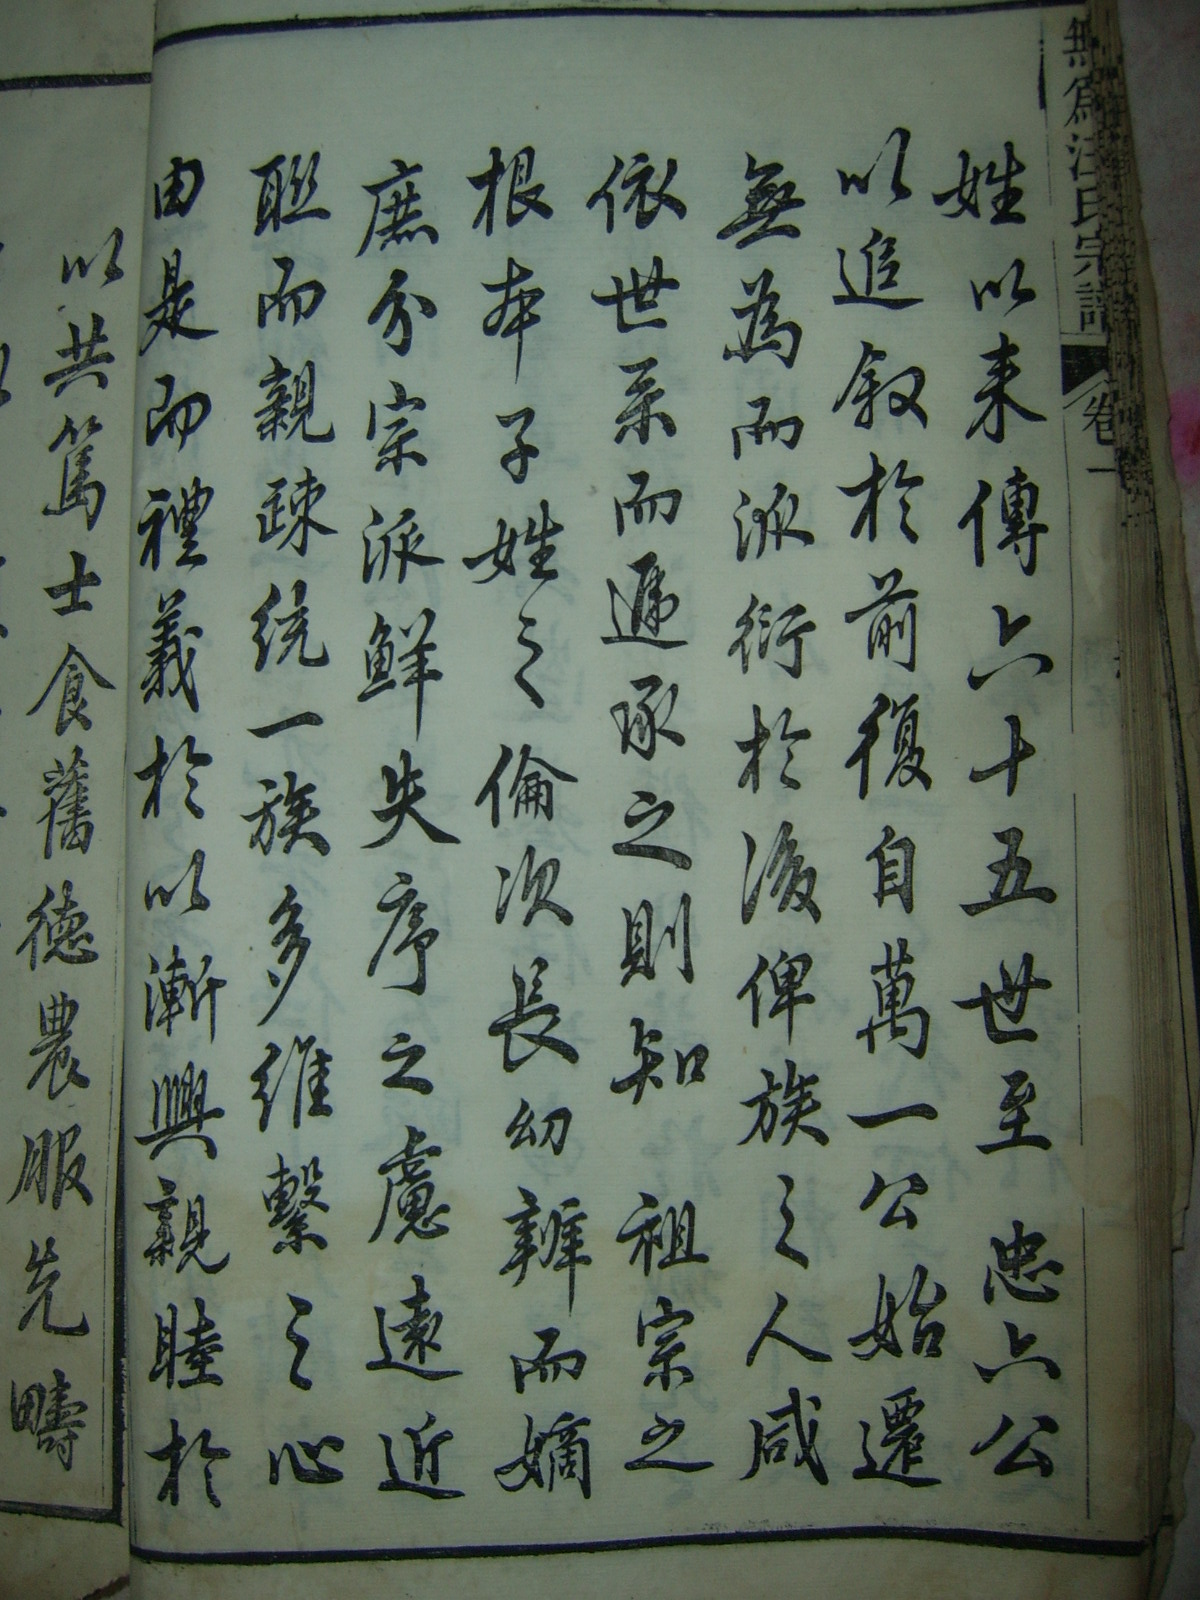 無爲汪氏宗譜 卷一
姓以来傳六十五世至 忠六公
以追叙於前復自萬一公始遷
無為而派衍於後俾族之人咸
依世系而遞承之則知 祖宗之
根本子姓之倫次長幼辨而嫡
庶分宗派鮮失序之慮遠近
聯而親疎統一族多維繫之心
由是而禮義於以漸興親睦於
以共篤士食舊德農服先疇